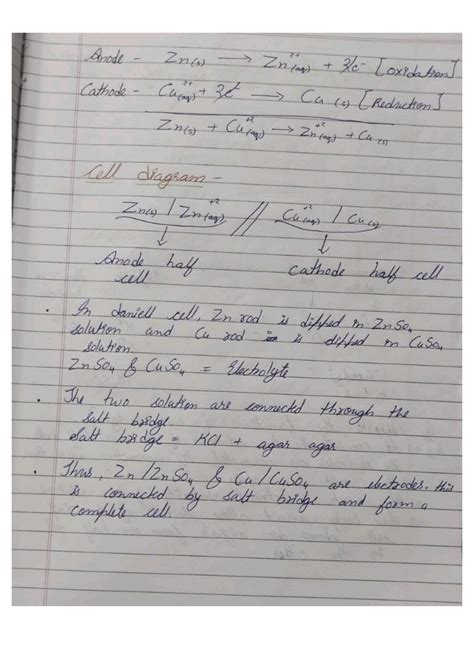 Anode - Zn(s) → Zn⁺²(aq) + 2e⁻ [oxidation]
Cathode - Cu⁺²(aq) + 2e⁻ → Cu(s) [Reduction]
Zn(s) + Cu⁺²(aq) → Zn⁺²(aq) + Cu(s)
Cell diagram -
Zn(s) / Zn⁺²(aq) // Cu⁺²(aq) / Cu(s)
Anode half cell
Cathode half cell
• In daniell cell, Zn rod is dipped in ZnSo₄
solution and Cu rod is dipped in CuSo₄
solution.
ZnSo₄ & CuSo₄ = Electrolyte
• The two solution are connected through the
salt bridge.
Salt bridge = KCl + agar agar
• Thus, Zn/ZnSo₄ & Cu/CuSo₄ are electrodes. this
is connected by salt bridge and form a
complete cell.